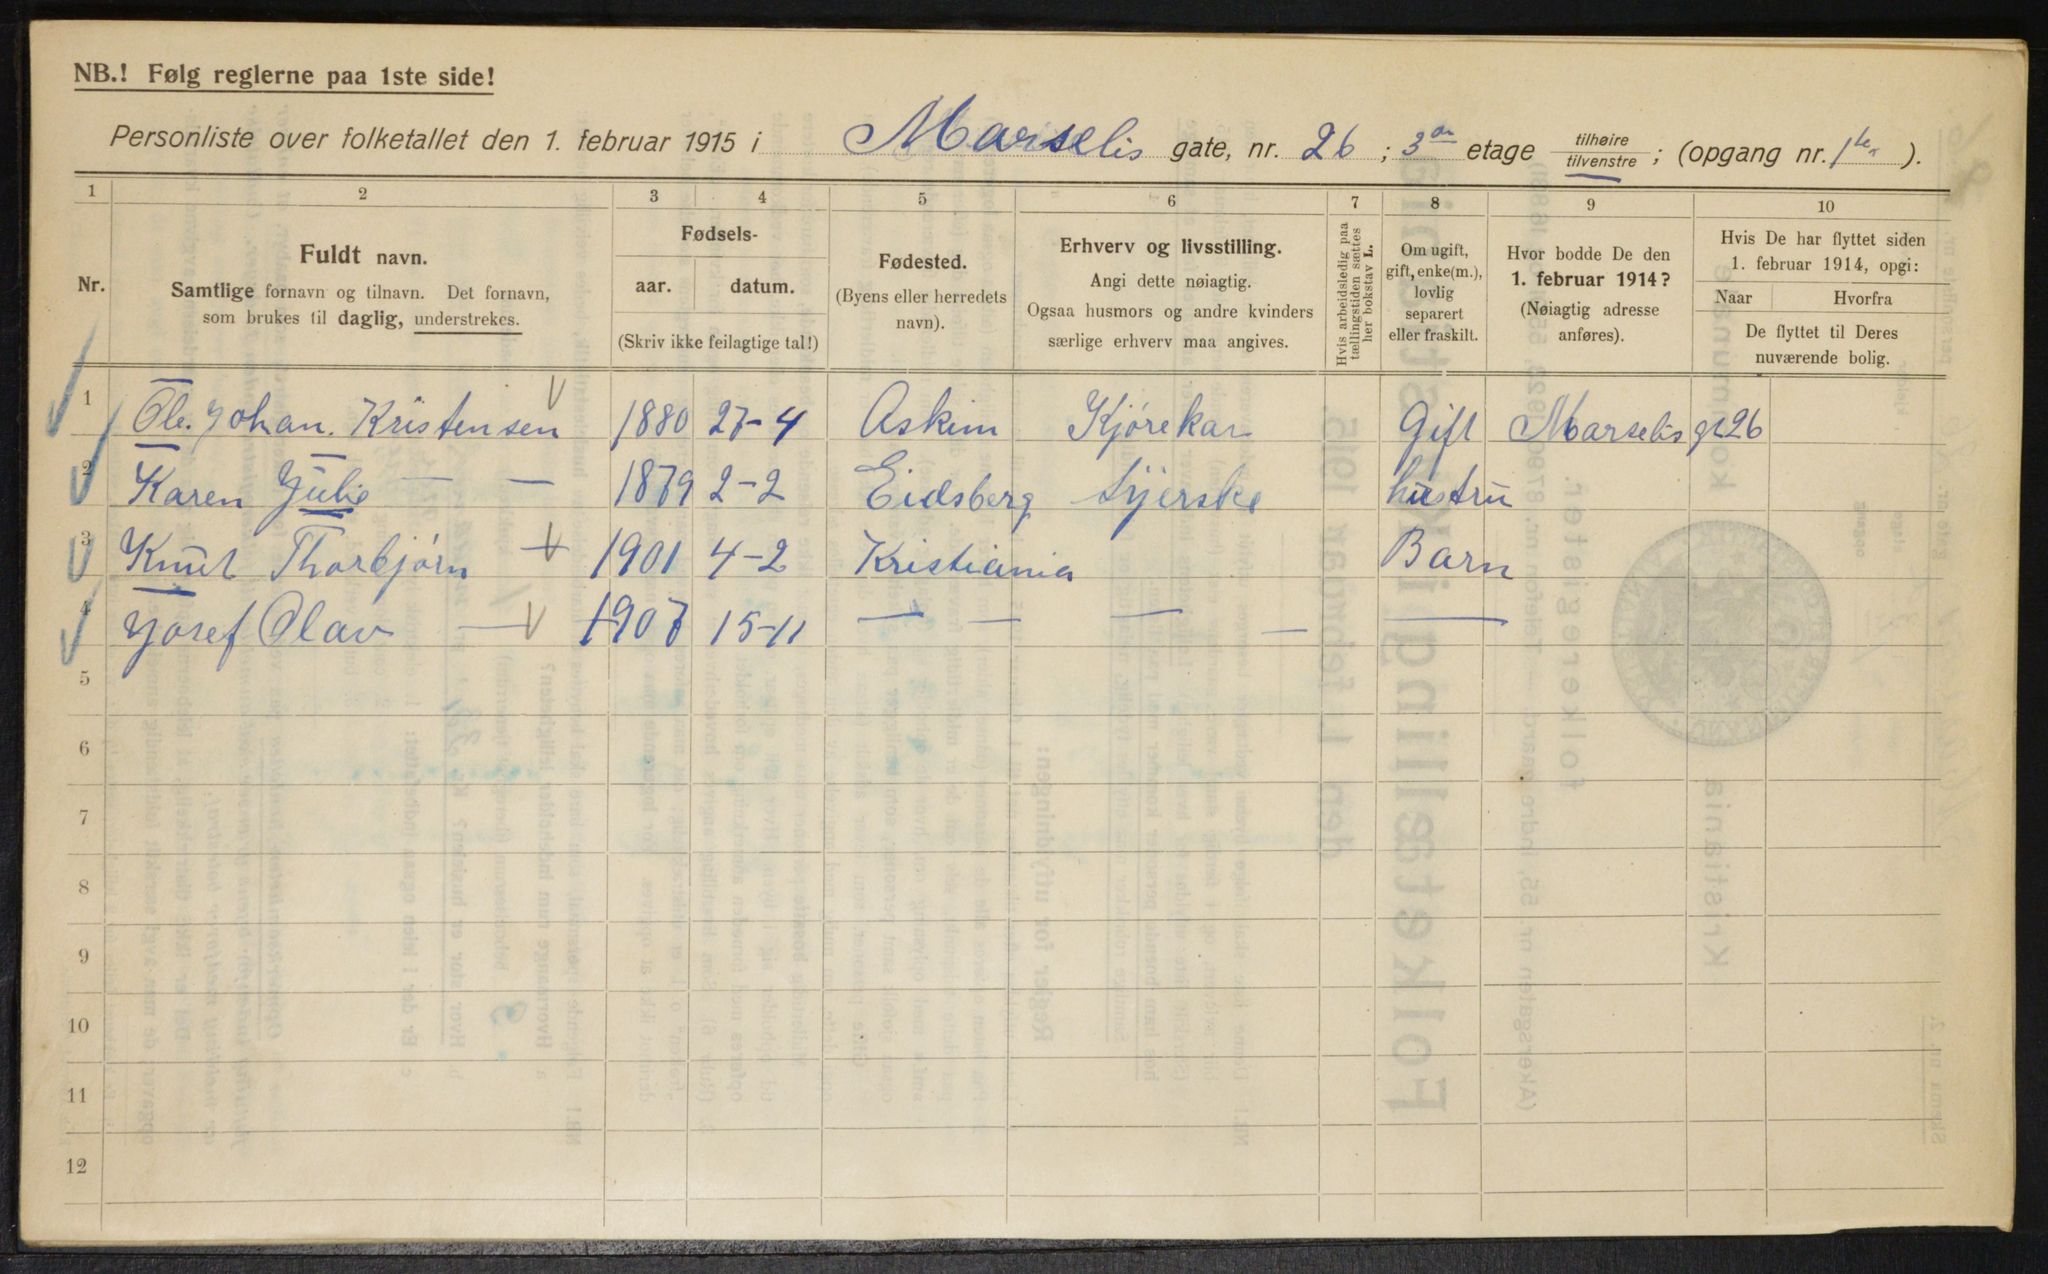 NB.! Følg reglerne paa 1ste side!
Personliste over folketallet den 1. februar 1915 i Marselis gate, nr. 26 ; 3 etage tilhøire tilvenstre ; (opgang nr. 1 ).
1 2 3 4 5 6 7 8 9 10
Nr.
Fuldt navn.
Samtlige fornavn og tilnavn. Det fornavn,
som brukes til daglig, understrekes.
Fødsels-
aar. datum.
(Skriv ikke feilagtige tal!)
Fødested.
(Byens eller herredets
navn).
Erhverv og livsstilling.
Angi dette nøiagtig.
Ogsaa husmors og andre kvinders
særlige erhverv maa angives.
Hvis arbeidsledig paa
tællingstiden sættes
her bokstav L.
Om ugift,
gift, enke(m.),
lovlig
separert
eller fraskilt.
Hvor bodde De den
1. februar 1914?
(Nøiagtig adresse
anføres).
Hvis De har flyttet siden
1. februar 1914, opgi:
Naar Hvorfra
De flyttet til Deres
nuværende bolig.
1 Ole. Johan. Kristensen 1880 27-4 Askim Kjørekar Gift Marselis gt 26
2 Karen Julie — — 1879 2-2 Eidsberg Syerske hustru
3 Knut Thorbjørn 1901 4-2 Kristiania Barn
4 Josef Olav — 1907 15-11 — — — — —
5
6
7
8
9
10
11
12